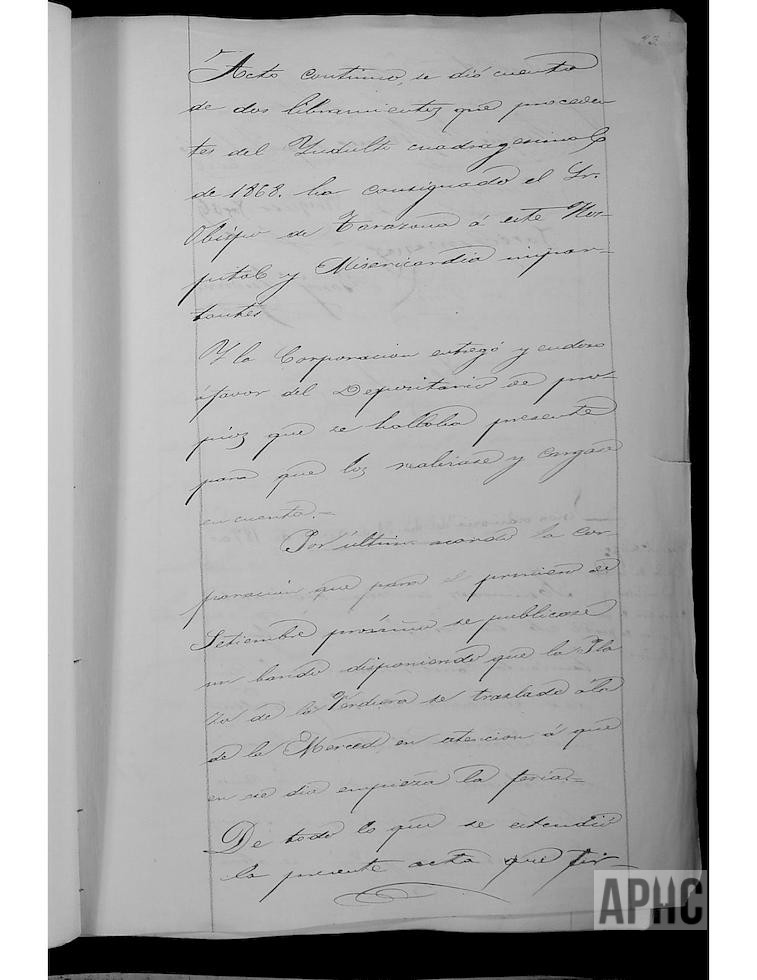 Acto continuo, se dió cuenta
de dos libramientos que proceden
tes del Indulto cuadragesimal
de 1868. ha consignado el Sr.
Obispo de Tarazona á este Hos-
pital y Misericordia impor-
tantes
Y la Corporacion entregó y endosó
á favor del Depositario de pro-
pios que se hallaba presente
para que los realizase y cargase
en cuenta.=
Por último acordó la cor-
poracion que para el primero de
Setiembre próximo se publicase
un bando disponiendo que la Pla
za de la Verdura se traslade á la
de la Merced, en atencion á que
en ese dia empieza la feria.=
De todo lo que se estendió
la presente acta que fir
APHC